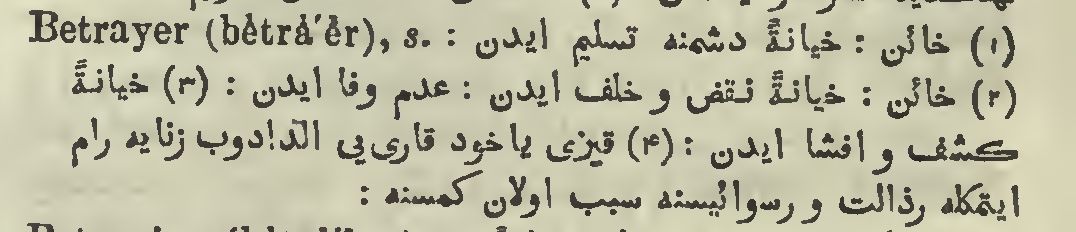 Betrayer (bĕtrā´ĕr), s. : (١) خائن : خیانةً دشمنه تسلیم ایدن
(٢) خائن : خیانةً نقض و خلف ایدن : عدم وفا ایدن : (٣) خیانةً
کشف و افشا ایدن : (۴) قیزی یا خود قاری‌یی الدادوب زنایه رام
ایتمکله رذالت و رسوائیسنه سبب اولان کمسنه :